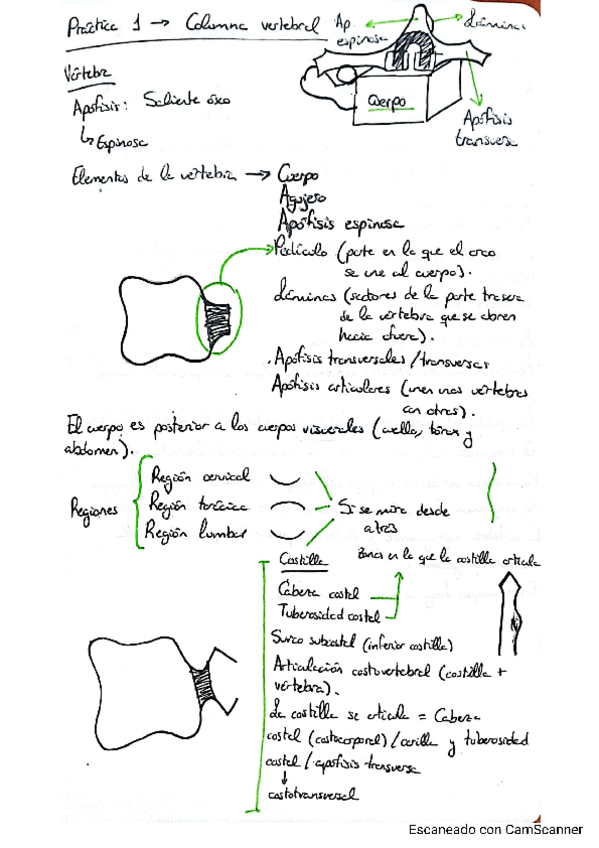 Práctica 1 → Columna vertebral
Ap. espinosa
Láminas
Vértebra
Cuerpo
Apófisis: Saliente óseo
↳ Espinosa
Apófisis
transversa
Elementos de la vértebra → Cuerpo
Agujero
Apófisis espinosa
Pedículo (parte en la que el arco
se une al cuerpo).
Láminas (sectores de la parte trasera
de la vértebra que se abren
hacia fuera).
Apófisis transversales/transversas
Apófisis articulares (unen unas vértebras
con otras).
El cuerpo es posterior a los cuerpos viscerales (cuello, tórax y
abdomen).
Regiones
Región cervical
Región torácica
Región lumbar
Si se mira desde
atrás
Costilla
Zona en la que la costilla articula
Cabeza costal
Tuberosidad costal
Surco subcostal (inferior costilla)
Articulación costovertebral (costilla +
vértebra).
La costilla se articula = Cabeza
costal (costocorporal)/carilla y tuberosidad
costal/apófisis transversa
↓
costotransversal
Escaneado con CamScanner